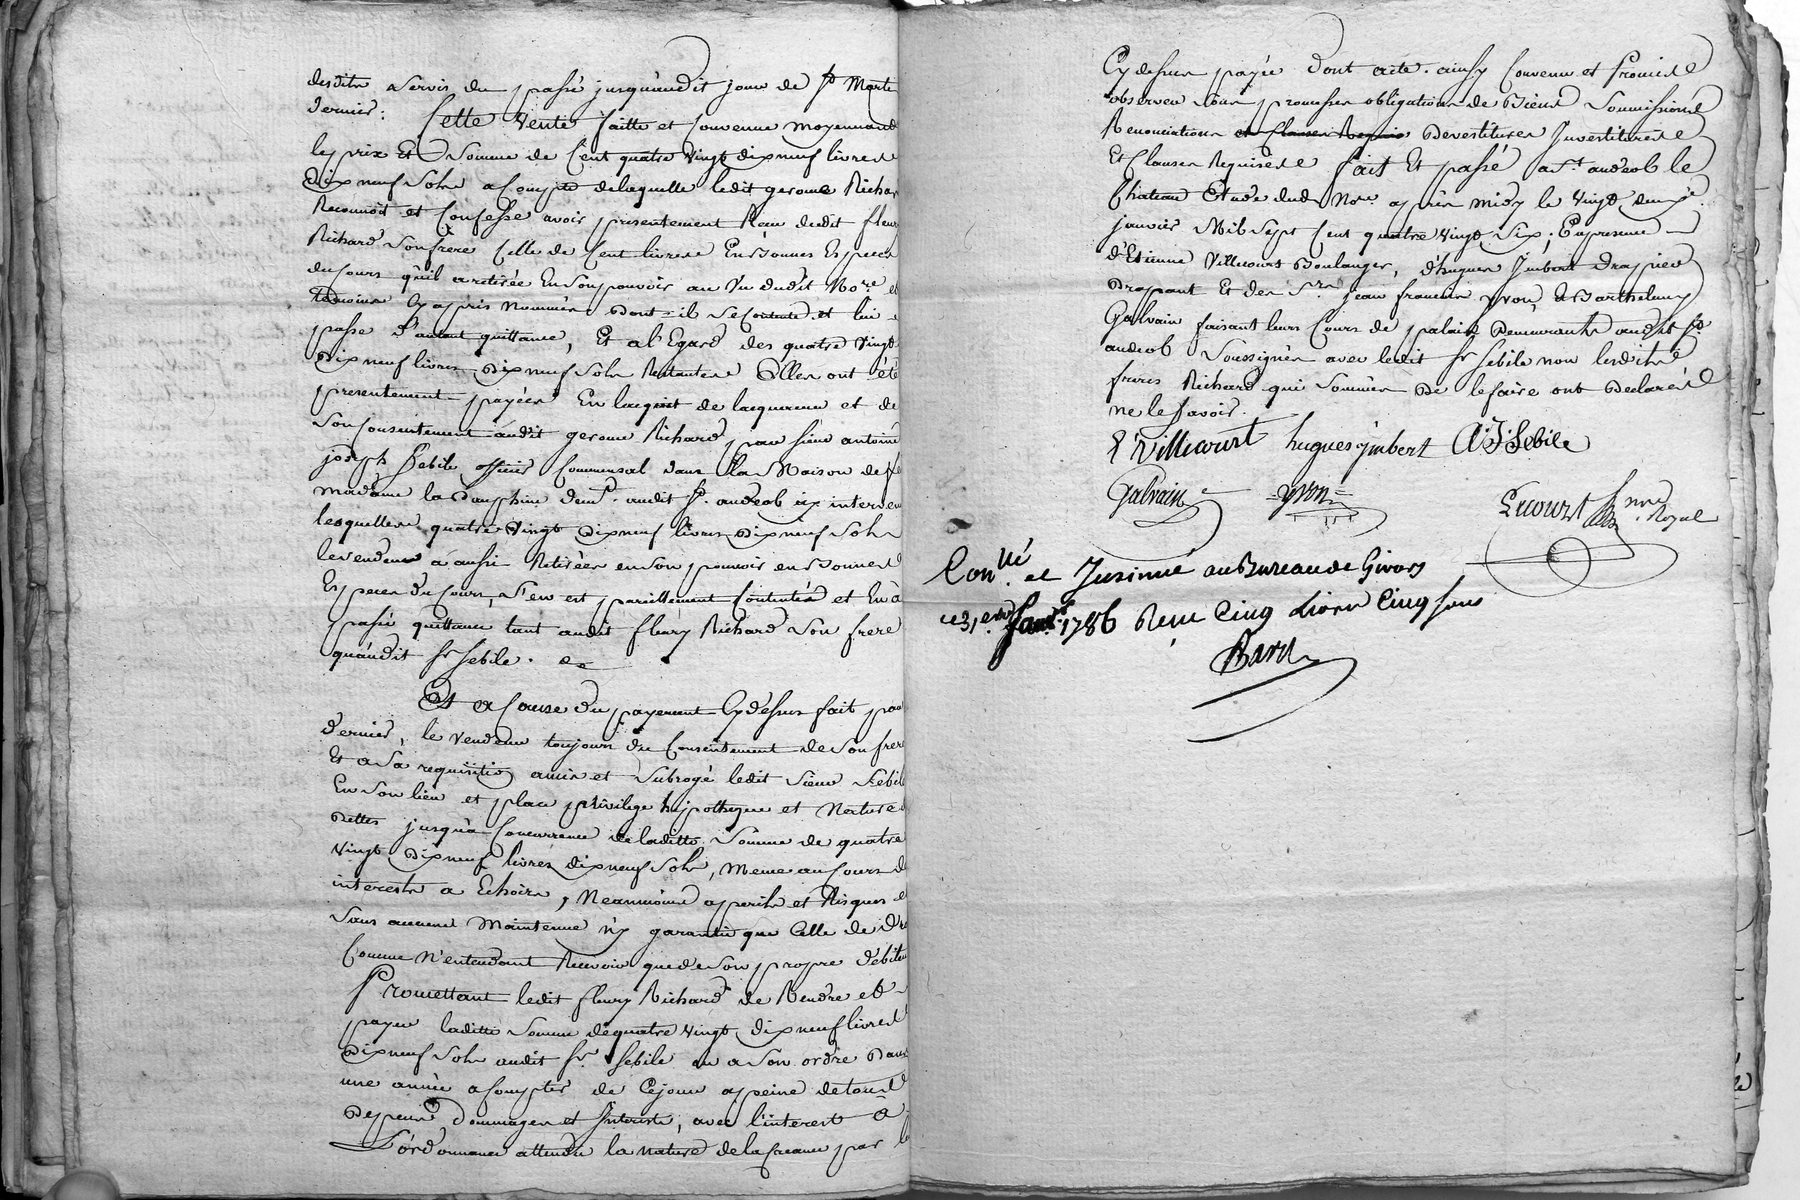 desdits servis du passé jusqu'audit jour de st Martin
dernier; Cette Vente faitte et Convenue moyennant
le prix Et Somme de Cent quatre Vingt dix neuf livres
Dix neuf Sols acompte delaquelle ledit gerome Richard
Reconnoit et Confesse avoir presentement Reçu dudit fleury
Richard Son frere Celle de Cent livres En bonnes Especes
du Cours qu'il a retirée En Son pouvoir au Vu dudit Nore et
temoins Cy après Nommés Dont il Se Contente et lui
passe d'autant quittance, Et al'Egard des quatre Vingt
Dix neuf livres Dix neuf Sols Restantes Elles ont été
presentement payées En lacquit de lacquereur et de
Son Consentement audit gerome Richard par Sieur antoine
joseph Sebile officier Commensal dans la Maison de fe
madame la Dauphine demt. audit St. andeol icy intervenu
lesquelles quatre Vingt Dix neuf livres Dix neuf Sols
le vendeur a aussi Retirées en Son pouvoir en bonnes
Especes du Cours, S'en est pareillement Contenté et En a
passé quittance tant audit fleury Richard Son frere
qu'audit Sr Sebile.
Et a Cause du payement Cy dessus fait par
dernier, le Vendeur toujours du Consentement de Son frere
Et a Sa requisition a mis et Subrogé ledit Sieur Sebile
En Son lieu et place privilege hypotheque et Nature de
Dettes jusqu'a Concurrence de laditte Somme de quatre
Vingt Dix neuf livres dix neuf Sols, Meme au Cours des
interests a Echoire, Neanmoins a perils et Risques et
Sans aucune Maintenue ny garantie que Celle de Droit
Comme N'entendant Recevoir que de Son propre débiteur
Promettant ledit fleury Richard de Rendre et
payer laditte Somme de quatre Vingt dix neuf livres
Dix neuf Sols audit Sr. Sebile ou a Son ordre Dans
une année a Compter de Ce jour a peine de tous
Depens, Dommages et Interests, avec l'interest a
L'ordonnance attendu la nature de la Creance par lu
Cy dessus payée Dont acte. ainsy Convenu et Promis
observer Sous promesses obligations de Biens Soumissions
Renonciations et Clauses Requises Devestitures Investitures
Et Clauses Requises Fait Et passé a St. andeol le
Chateau Etude dud. Nore après midy le Vingt deuxe.
janvier Mil Sept Cent quatre Vingt Six; En presence
d'Etienne Villecourt Boulanger, d'hugues Imbert Drapier
Drapant Et des Srs. jean francois yvon & Barthelemy
Galvain faisant leurs Cours de palais Demeurants audit St.
andeol Soussignés avec ledit Sr Sebile non lesdits
freres Richard qui Sommés De le faire ont Declarés
ne le Savoir.
E Villecourt hugues imbert A:J:Sebile
Galvain yvon Lecourt nre Royal
Conllé et Insinué au Bureau de Givors
ce 31 Janv. 1786 Reçu Cinq Livres Cinq Sous